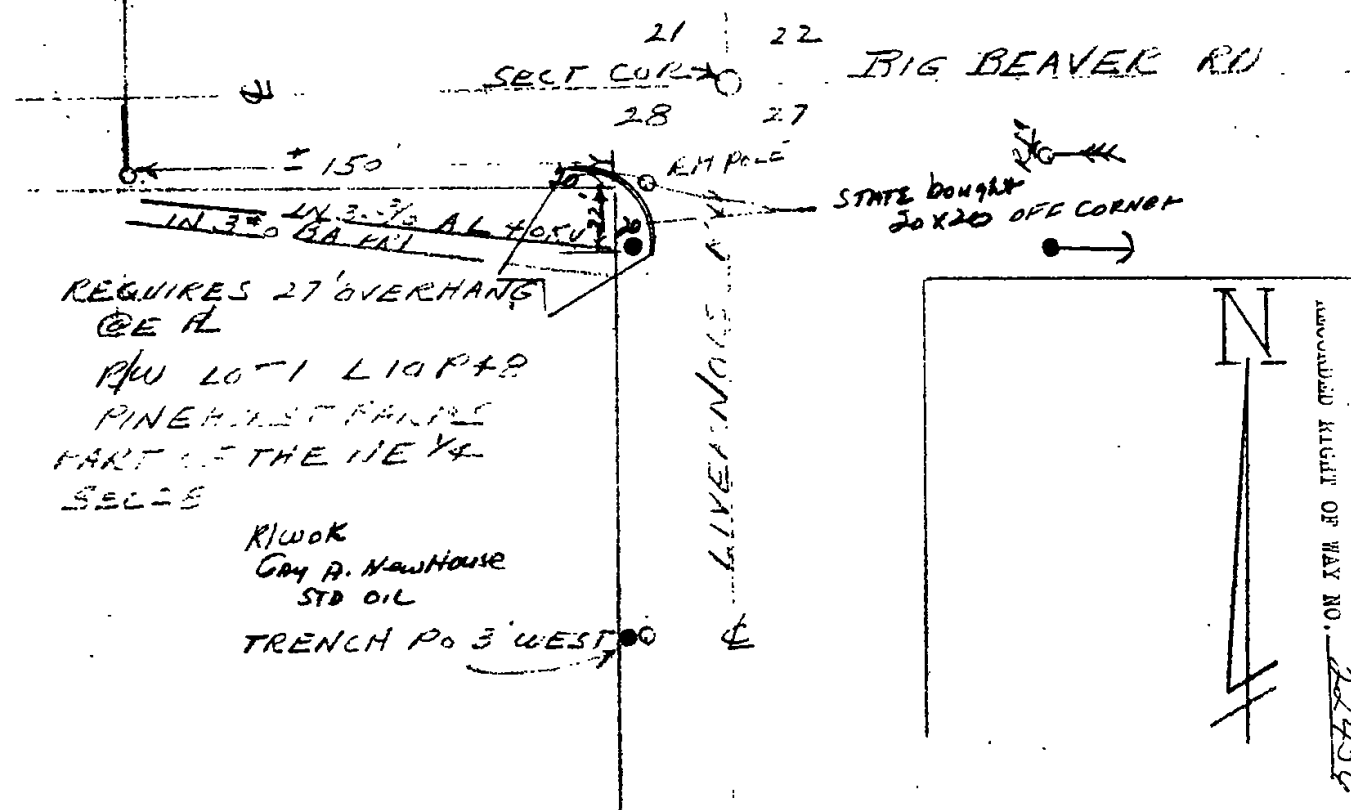 21 22
SECT COR
BIG BEAVER RD
28 27
± 150'
RM POLE
STATE bought
20 X 20 OFF CORNER
22
20
IN 3-3/0 AL 40KV
IN 3#0 BA
REQUIRES 27' OVERHANG
@ E PL
R/W LOT 1 L10 P48
PINEHURST FARMS
PART OF THE NE 1/4
SEC 28
LIVERNOIS
N
R/W OK
GAY A. NEWHOUSE
STD OIL
TRENCH PO 3' WEST
RECORDED RIGHT OF WAY NO.